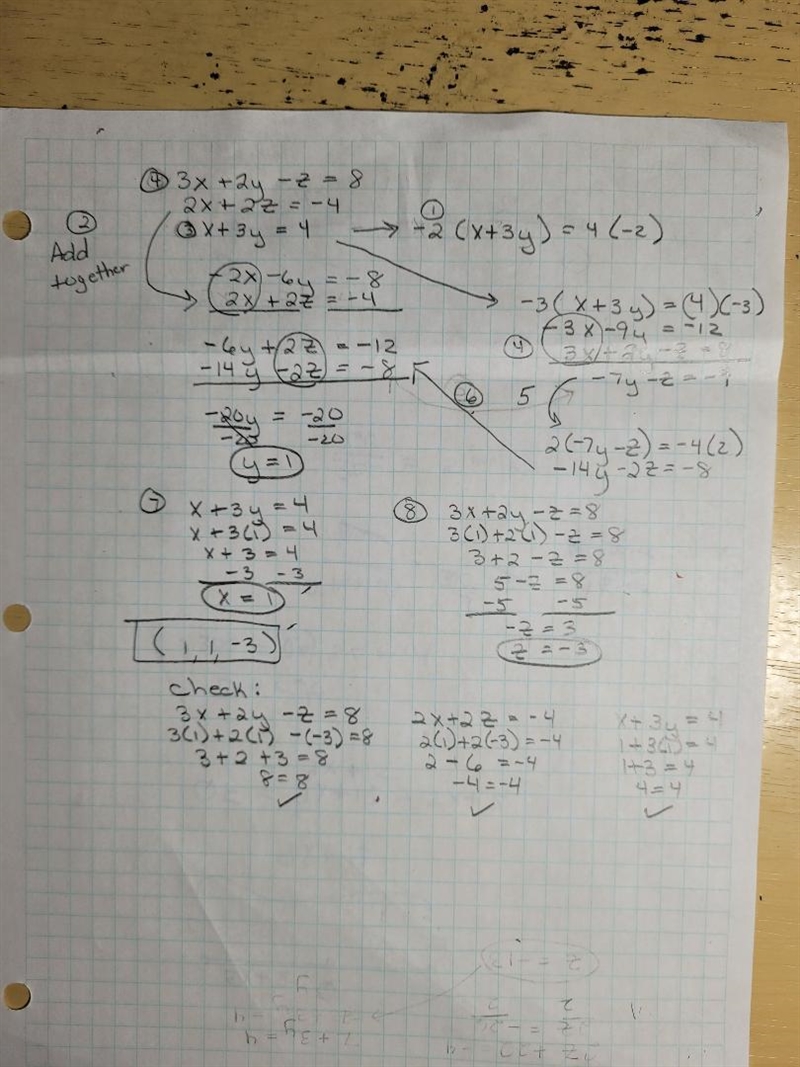 ④ 3x + 2y - z = 8
2x + 2z = -4
③ x + 3y = 4
① -2 (x+3y) = 4 (-2)
② Add together
-2x - 6y = -8
2x + 2z = -4
-3(x + 3y) = (4)(-3)
-3x - 9y = -12
④ 3x + 2y - z = 8
-7y - z = -4
-6y + 2z = -12
-14y - 2z = -8
⑥ 5
-20y = -20
-20 -20
y = 1
2(-7y - z) = -4(2)
-14y - 2z = -8
⑦ x + 3y = 4
x + 3(1) = 4
x + 3 = 4
-3 -3
x = 1
(1, 1, -3)
⑧ 3x + 2y - z = 8
3(1) + 2(1) - z = 8
3 + 2 - z = 8
5 - z = 8
-5 -5
-z = 3
z = -3
check:
3x + 2y - z = 8
3(1) + 2(1) - (-3) = 8
3 + 2 + 3 = 8
8 = 8
✓
2x + 2z = -4
2(1) + 2(-3) = -4
2 - 6 = -4
-4 = -4
✓
x + 3y = 4
1 + 3(1) = 4
1 + 3 = 4
4 = 4
✓